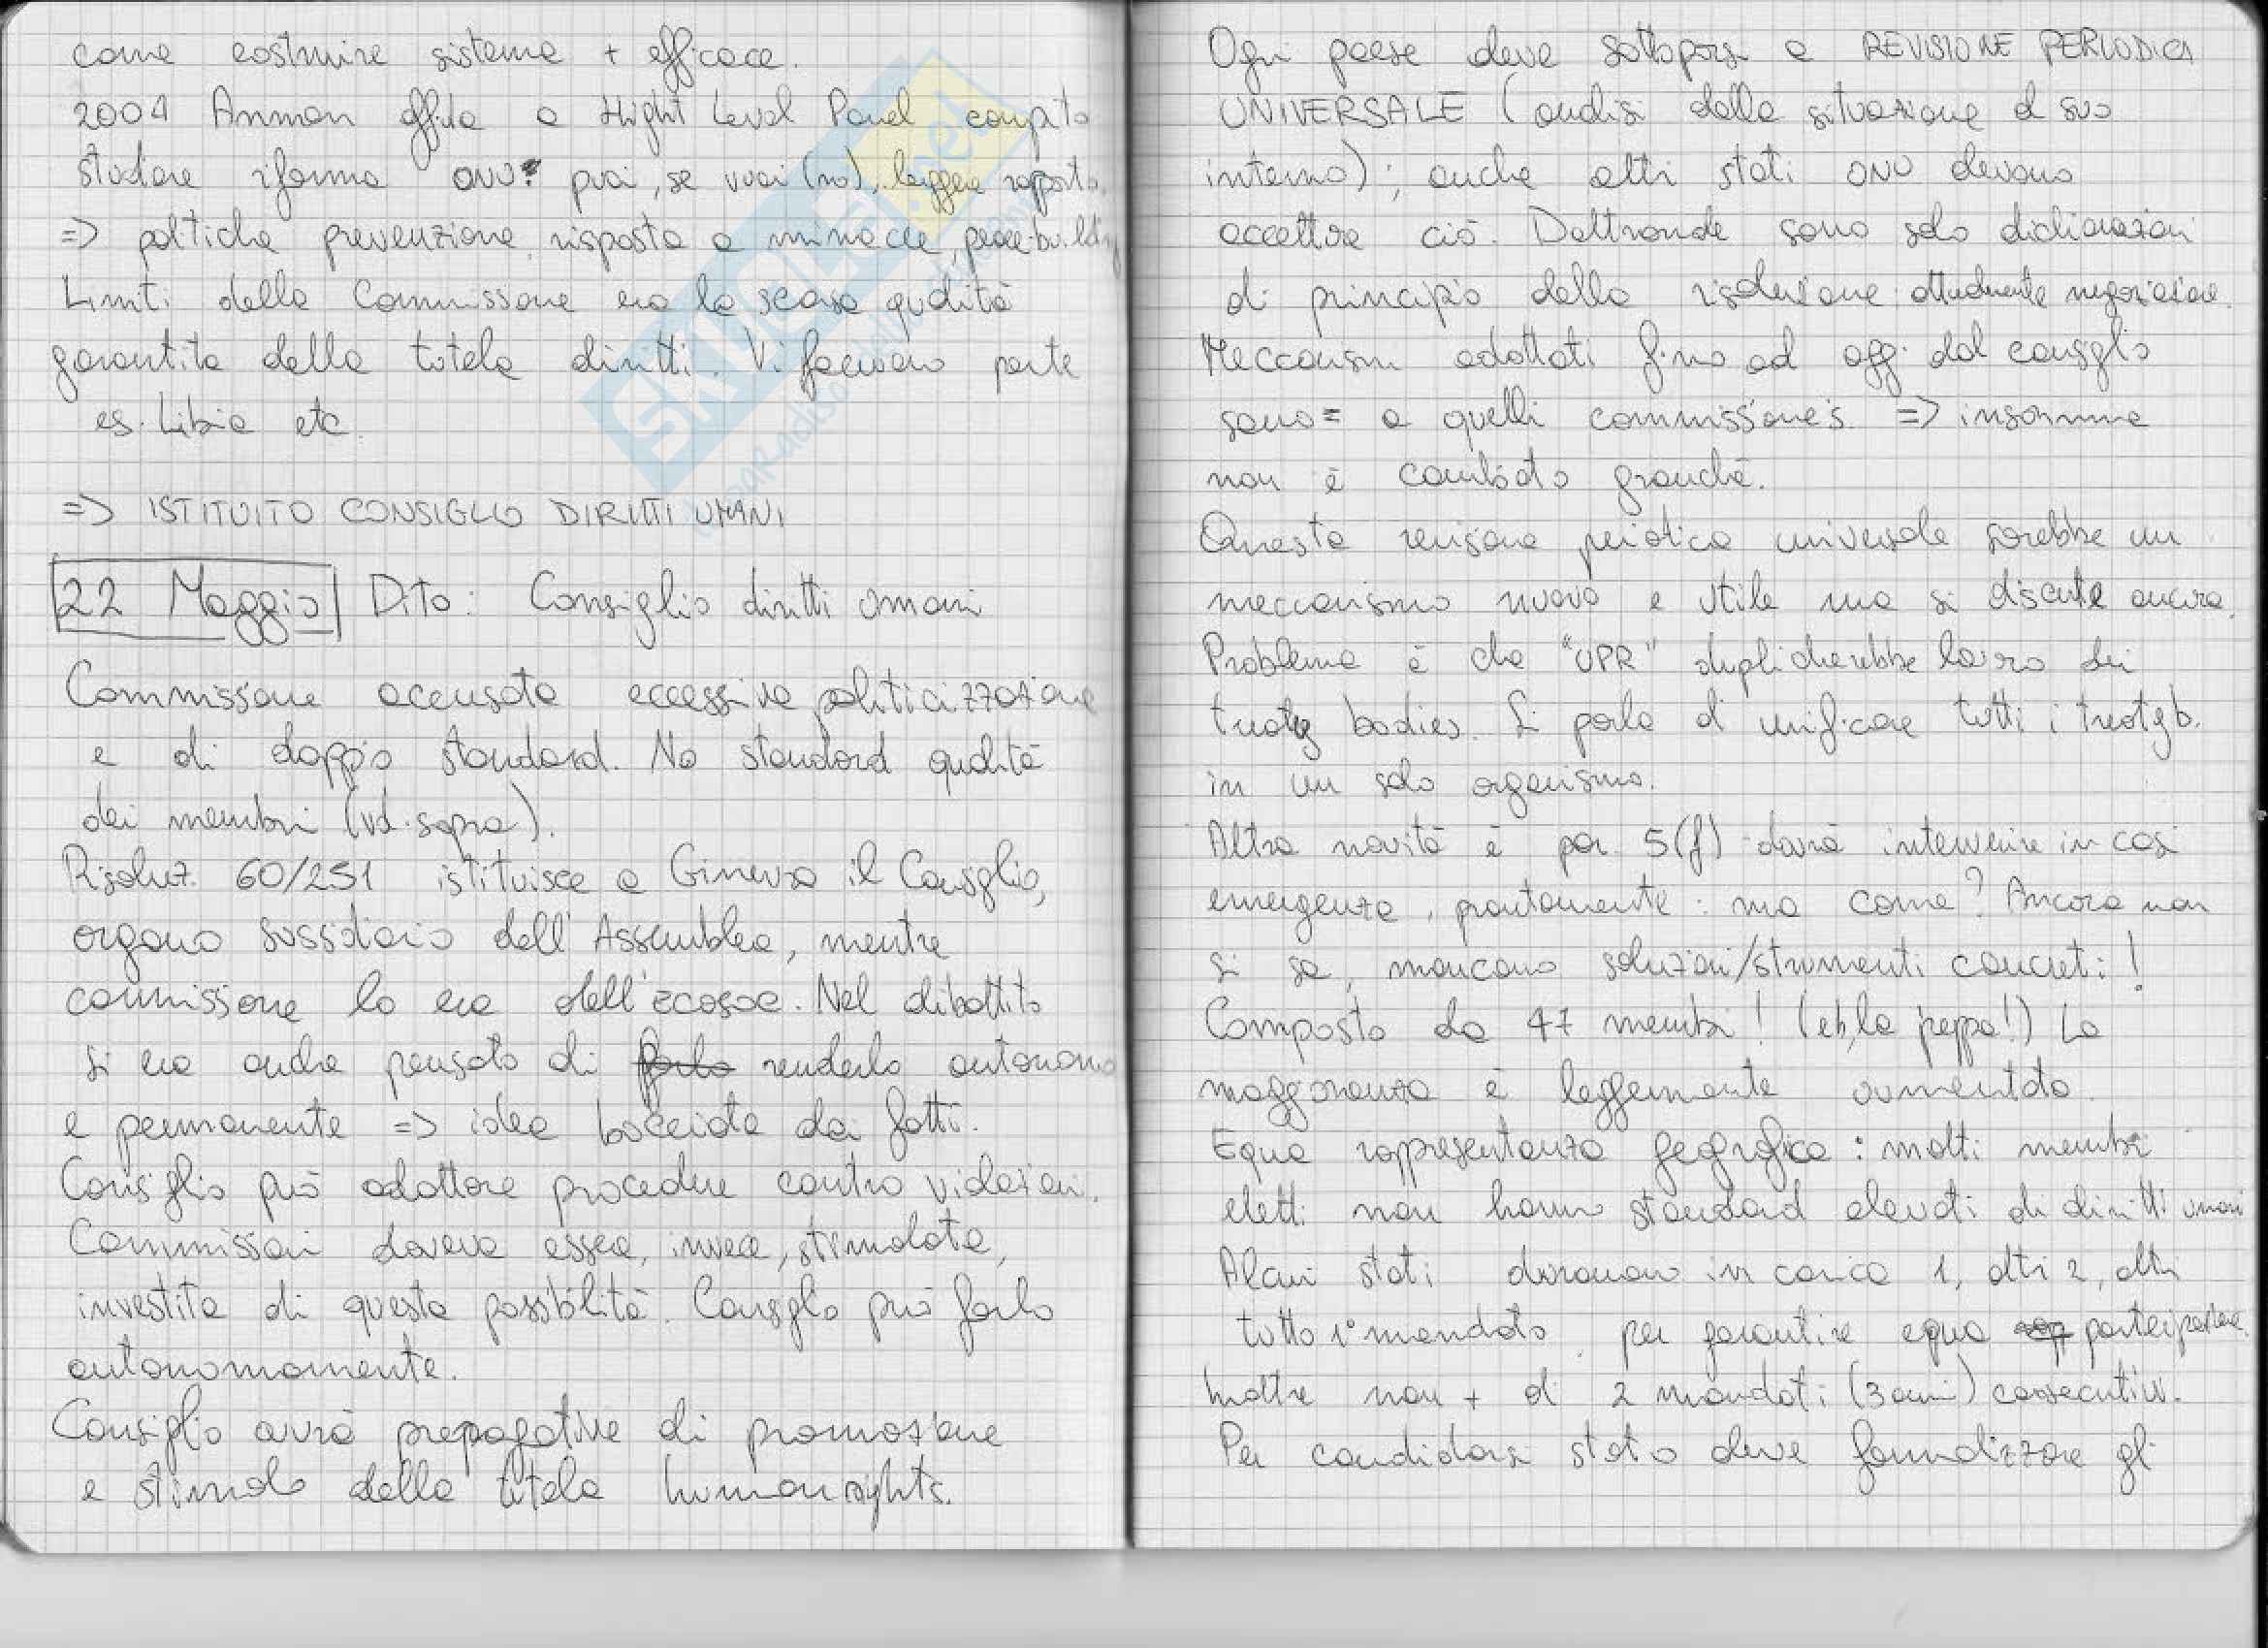 come costruire sistema + efficace.
2004 Annan affida a Hight Level Panel compito
studiare riforma ONU: puoi, se vuoi (no), leggere rapporto.
=> politiche prevenzione, risposta a minacce, peace-building
Limiti della Commissione era la scarsa qualità
garantita della tutela diritti. Vi facevano parte
es. Libia etc.
=> ISTITUITO CONSIGLIO DIRITTI UMANI
22 Maggio Dito: Consiglio diritti umani
Commissione accusata eccessiva politicizzazione
e di doppio standard. No standard qualità
dei membri (vd. sopra).
Risoluz. 60/251 istituisce a Ginevra il Consiglio,
organo sussidiario dell'Assemblea, mentre
commissione lo era dell'ECOSOC. Nel dibattito
si era anche pensato di farlo renderlo autonomo
e permanente => idea bocciata dai fatti.
Consiglio può adottare procedure contro violazioni.
Commission doveva essere, invece, stimolata,
investita di questa possibilità. Consiglio può farlo
autonomamente.
Consiglio avrà prerogative di promozione
e stimolo della tutela human rights.
Ogni paese deve sottoporsi a REVISIONE PERIODICA
UNIVERSALE (analisi della situazione al suo
interno); anche altri stati ONU devono
accettare ciò. Daltronde sono solo dichiarazioni
di principio della risoluzione attualmente negoziazione.
Meccanismi adottati fino ad oggi dal consiglio
sono = a quelli commissione's => insomma
non è cambiato granché.
Questa revisione periodica universale sarebbe un
meccanismo nuovo e utile ma si discute ancora.
Problema è che "UPR" duplicherebbe lavoro dei
treaty bodies. Si parla di unificare tutti i treaty b.
in un solo organismo.
Altra novità è par. 5(f) dovrà intervenire in casi
emergenza, prontamente: ma come? Ancora non
si sa, mancano soluzioni/strumenti concreti!
Composto da 47 membri! (eh, la peppa!) La
maggioranza è leggermente aumentata.
Equa rappresentanza geografica: molti membri
eletti non hanno standard elevati di diritti umani
Alcuni stati dureranno in carica 1, altri 2, altri
tutto 1° mandato per garantire equa partecipazione.
Inoltre non + di 2 mandati (3 anni) consecutivi.
Per candidarsi stato deve formalizzare gli
SKUOLA.net